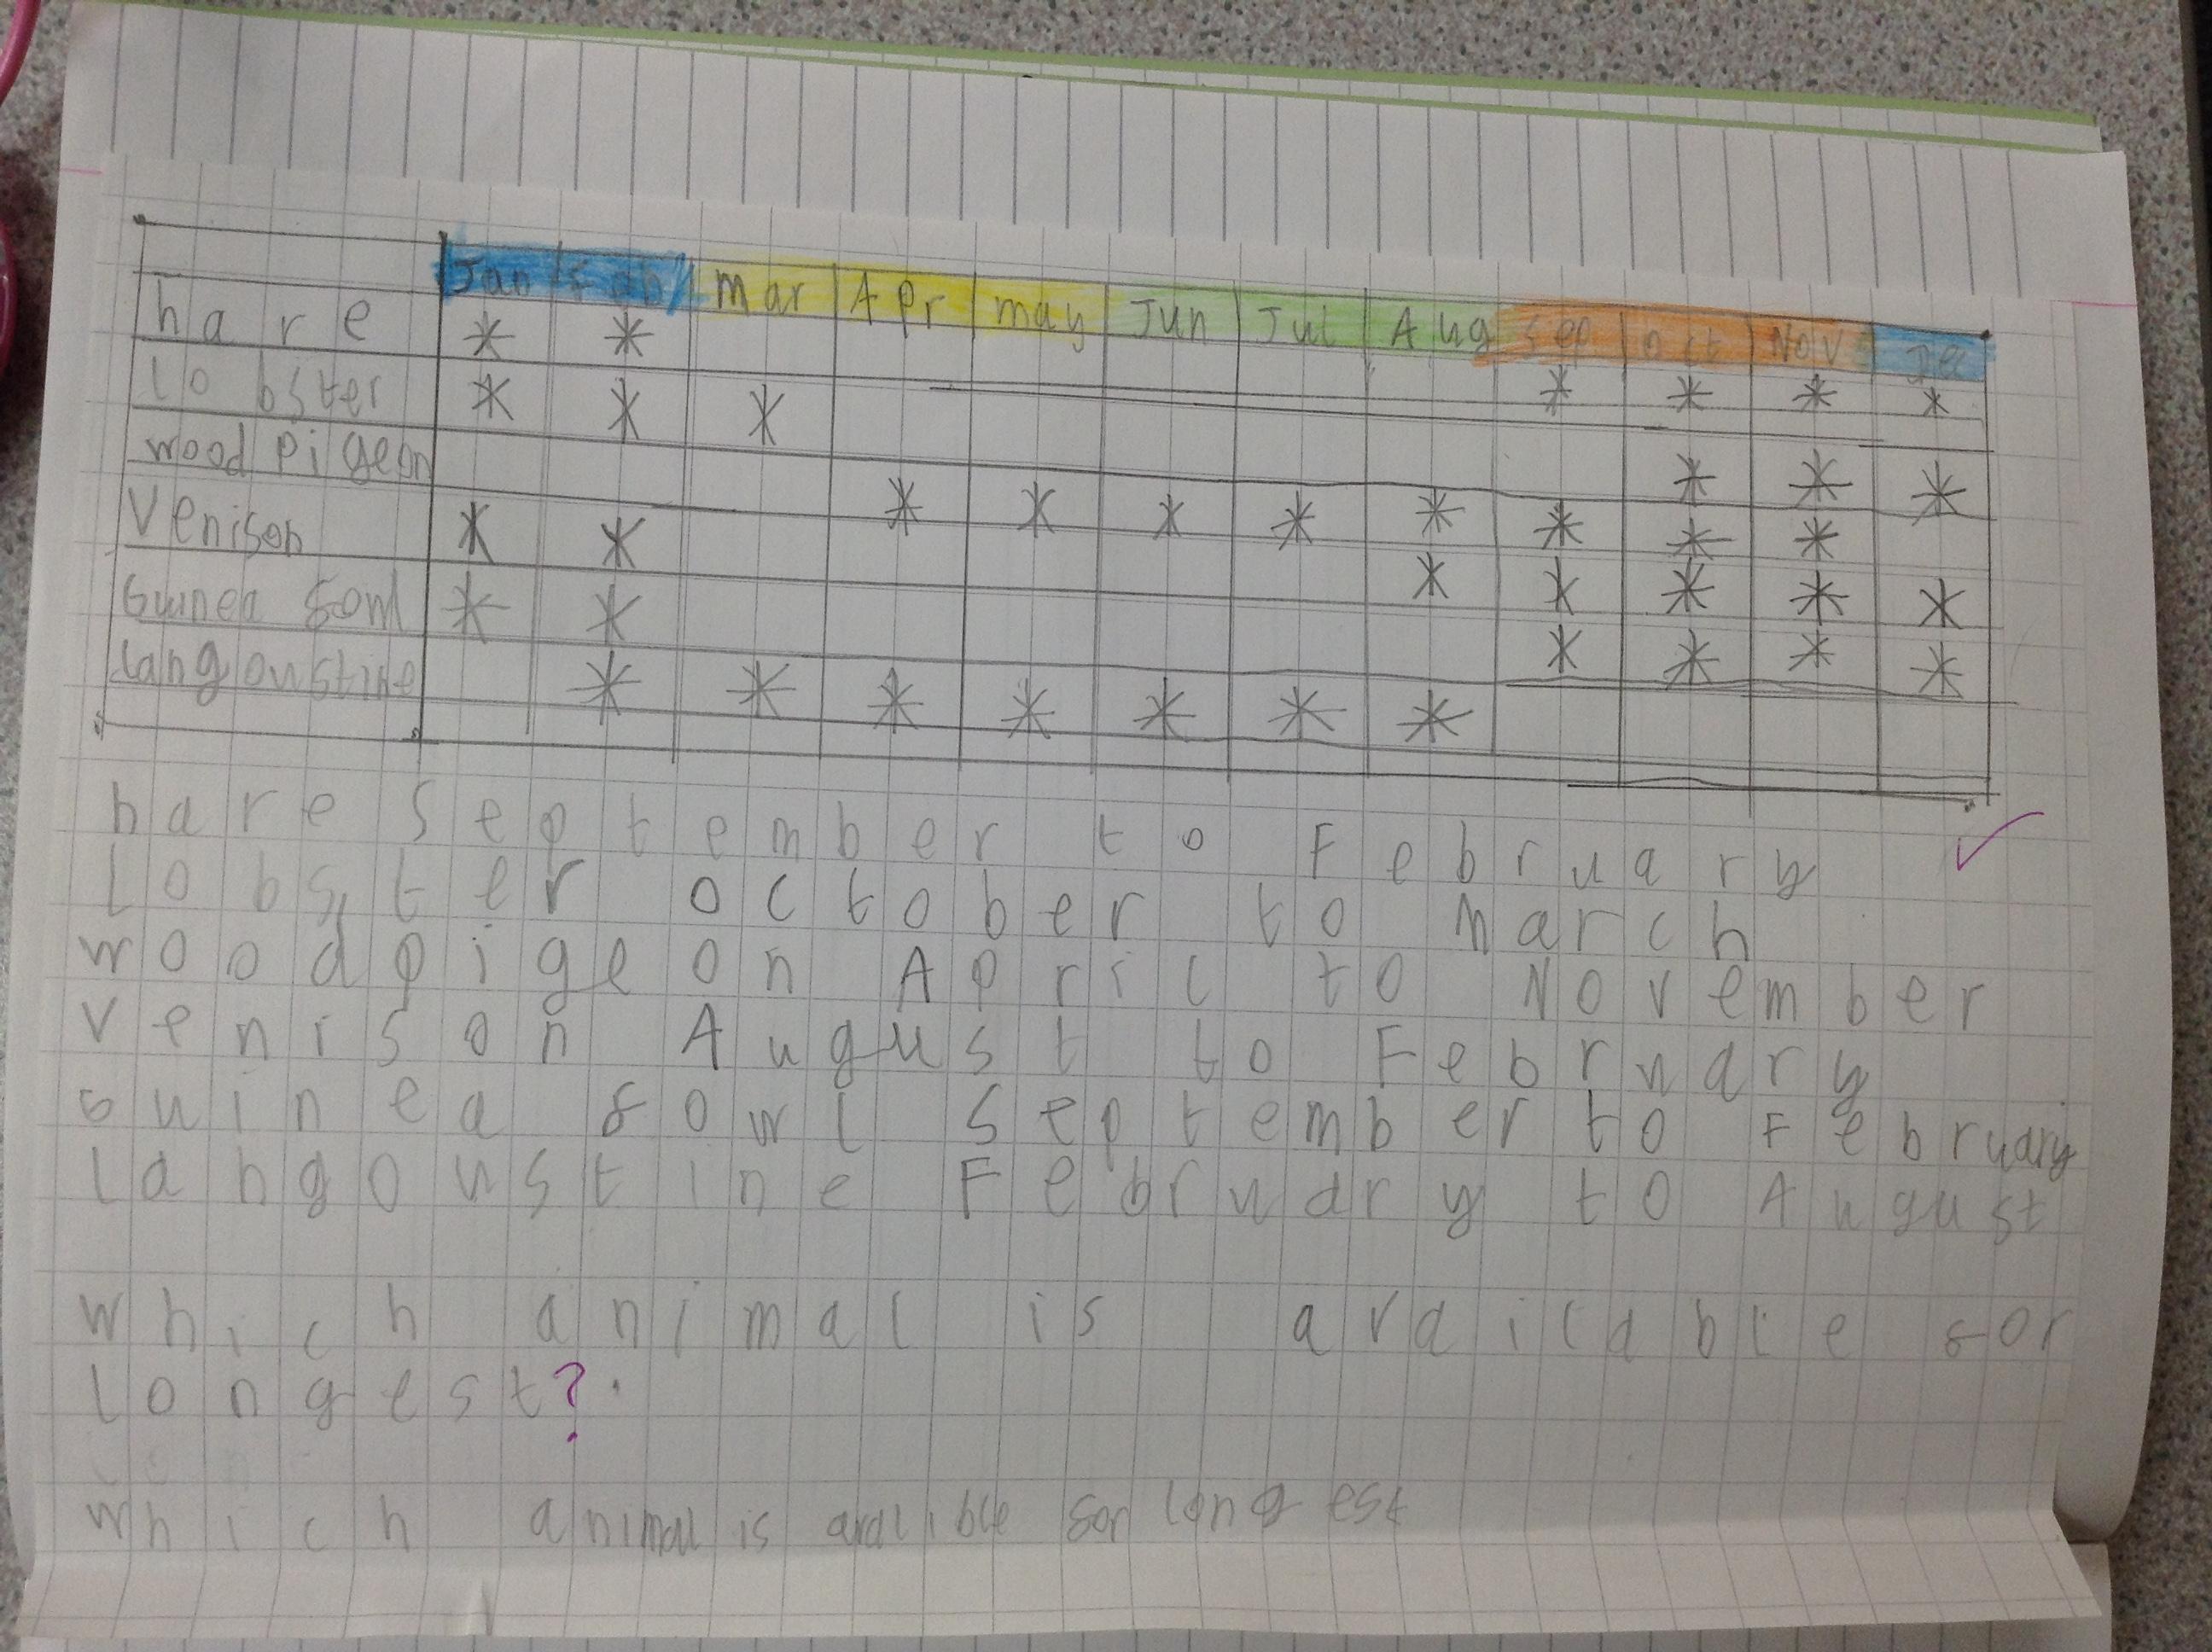 Jan Feb Mar Apr may Jun Jul Aug Sep oct Nov Dec
hare * * * * * *
lobster * * * * * *
wood pigeon * * * * * * * *
Venison * * * * * * *
Guinea fowl * * * * * *
langoustine * * * * * * *
hare September to February
Lobster october to March
woodpigeon April to November
Venison August to February
Guinea fowl September to February
langoustine February to August
which animal is available for
longest?
which animal is avalible for longest